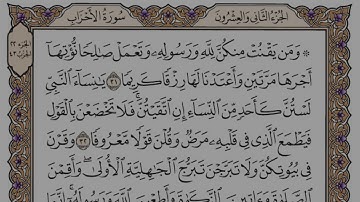 الجزء الثاني والعشرون
سورة الأحزاب
۞ وَمَن يَقْنُتْ مِنكُنَّ لِلَّهِ وَرَسُولِهِۦ وَتَعْمَلْ صَٰلِحًا نُّؤْتِهَآ
أَجْرَهَا مَرَّتَيْنِ وَأَعْتَدْنَا لَهَا رِزْقًا كَرِيمًا ٣١ يَٰنِسَآءَ ٱلنَّبِىِّ
لَسْتُنَّ كَأَحَدٍ مِّنَ ٱلنِّسَآءِ إِنِ ٱتَّقَيْتُنَّ فَلَا تَخْضَعْنَ بِٱلْقَوْلِ
فَيَطْمَعَ ٱلَّذِى فِى قَلْبِهِۦ مَرَضٌ وَقُلْنَ قَوْلًا مَّعْرُوفًا ٣٢ وَقَرْنَ
فِى بُيُوتِكُنَّ وَلَا تَبَرَّجْنَ تَبَرُّجَ ٱلْجَٰهِلِيَّةِ ٱلْأُولَىٰ وَأَقِمْنَ
ٱلصَّلَوٰةَ وَءَاتِينَ ٱلزَّكَوٰةَ وَأَطِعْنَ ٱللَّهَ وَرَسُولَهُۥٓ إِنَّمَا